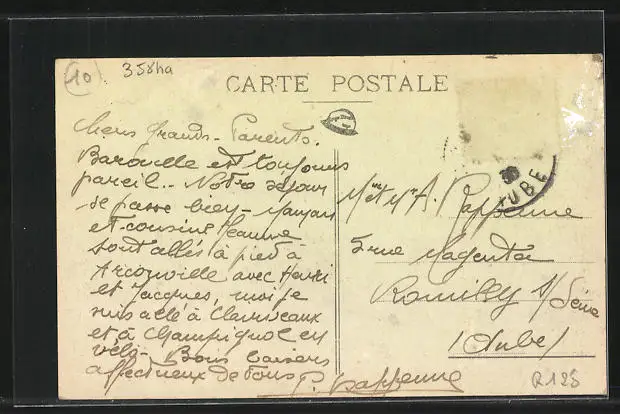 10
358ha
CARTE POSTALE
Chers Grands-Parents.
Baroville est toujours
pareil.. Notre séjour
se passe bien - Maman
et cousine Jeanne
sont allés à pied à
Arconville avec Henri
et Jacques, moi je
suis allé à Clairvaux
et à Champignol en
vélo - Bons baisers
affectueux de tous
P. Rappenne
AUBE
Mme et Mr A. Rappenne
5 rue Magenta
Romilly s/Seine
(Aube)
R128